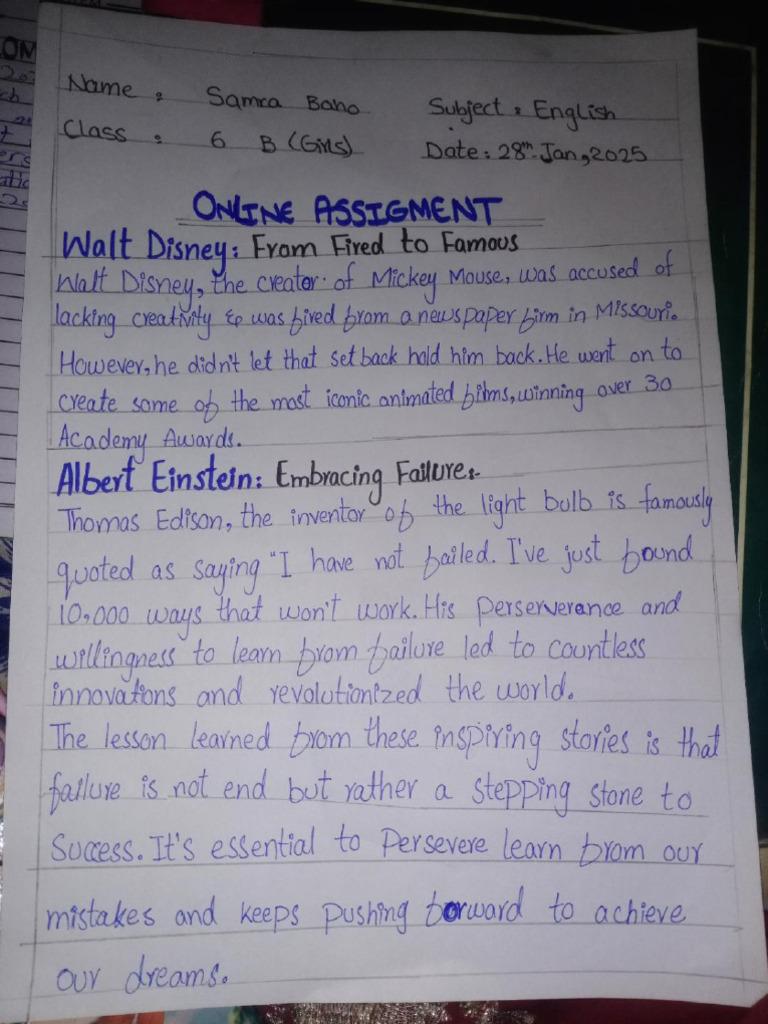 Name : Samra Bano Subject : English
Class : 6 B (Girls) Date : 28th Jan, 2025
ONLINE ASSIGMENT
Walt Disney: From Fired to Famous
Walt Disney, the creator of Mickey Mouse, was accused of
lacking creativity & was fired from a newspaper firm in Missouri.
However, he didn't let that setback hold him back. He went on to
create some of the most iconic animated films, winning over 30
Academy Awards.
Albert Einstein: Embracing Failure:-
Thomas Edison, the inventor of the light bulb is famously
quoted as saying "I have not failed. I've just found
10,000 ways that won't work. His perserverence and
willingness to learn from failure led to countless
innovations and revolutionized the world.
The lesson learned from these inspiring stories is that
failure is not end but rather a stepping stone to
Success. It's essential to Persevere learn from our
mistakes and keeps pushing forward to achieve
our dreams.